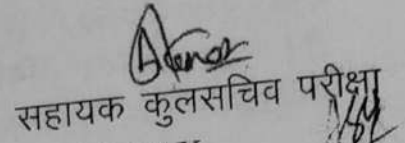 सहायक कुलसचिव परीक्षा